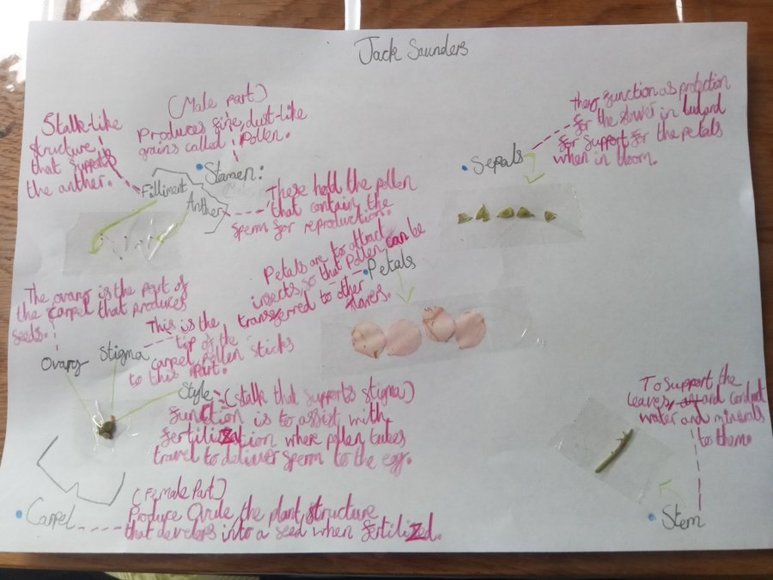 Jack Saunders
(Male part)
Produces fine, dust-like
grains called Pollen.
Stalk-like
structure
that supports
the anther.
Stamen:
Filliment
Anther
These hold the pollen
that contain the
sperm for reproductions.
Sepals
they function as protection
for the flower in bud and
for support for the petals
when in bloom.
Petals are to attract
insects, so that pollen can be
transferred to other
flowers.
Petals
The ovary is the part of
the carpel that produces
seeds.
Ovary
Stigma
This is the
top of the
carpel, pollen sticks
to this part.
Style
(stalk that supports stigma)
function is to assist with
fertilization where pollen tubes
travel to deliver sperm to the egg.
Carpel
(Female Part)
Produce Ovule the plant structure
that develops into a seed when fertilized.
To support the
leaves, and conduct
water and minerals
to them.
Stem